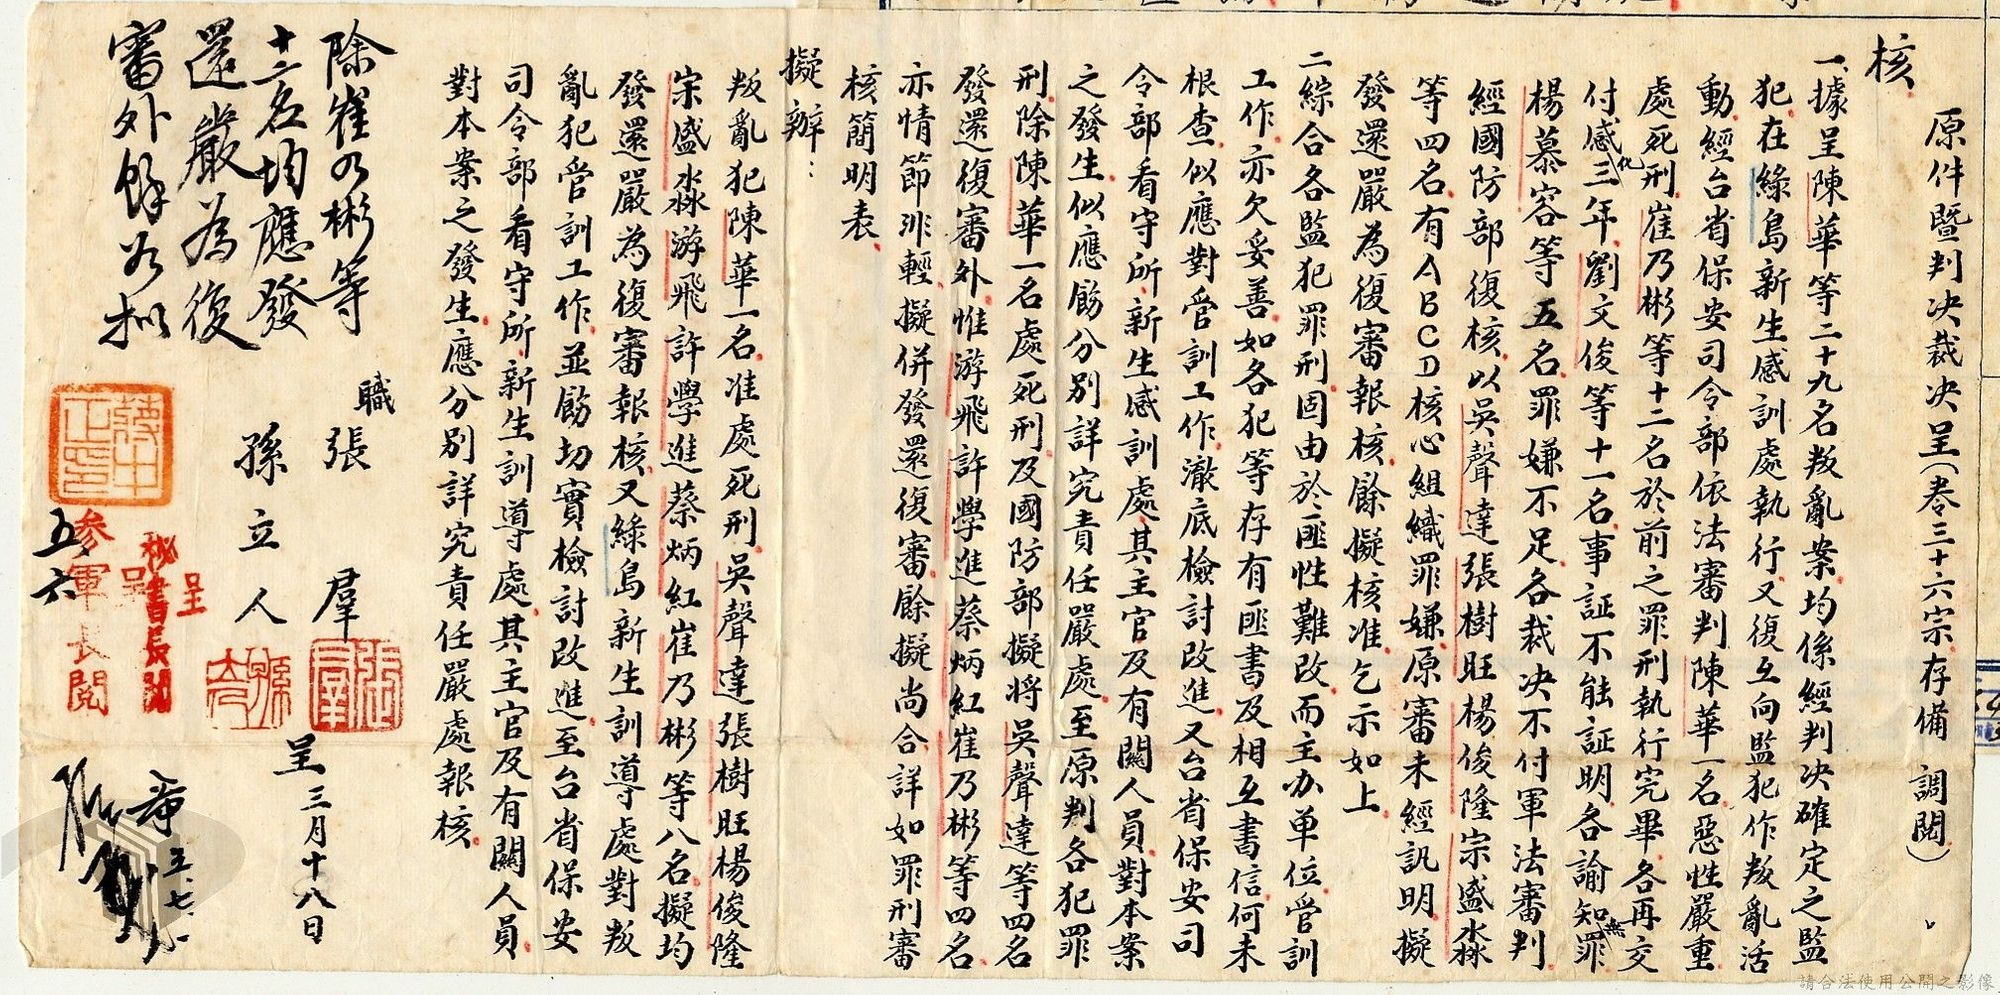 原件暨判決裁決呈(卷三十六宗存備 調閱)
核
一、據呈陳華等二十九名叛亂案均係經判決確定之監
犯在綠島新生感訓處執行又復互向監犯作叛亂活
動經台省保安司令部依法審判陳華一名惡性嚴重
處死刑崔乃彬等十二名於前之罪刑執行完畢各再交
付感化三年劉文俊等十一名事証不能証明各諭知無罪
楊慕容等五名罪嫌不足各裁決不付軍法審判
經國防部復核以吳聲達張樹旺楊俊隆宗盛淼
等四名有ABCD核心組織罪嫌原審未經訊明擬
發還嚴為復審報核餘擬核准乞示如上
二綜合各監犯罪刑固由於匪性難改而主办单位管訓
工作亦欠妥善如各犯等存有匪書及相互書信何未
根查似應對管訓工作澈底檢討改進又台省保安司
令部看守所新生感訓處其主官及有關人員對本案
之發生似應飭分別詳究責任嚴處至原判各犯罪
刑除陳華一名處死刑及國防部擬將吳聲達等四名
發還復審外惟游飛許學進蔡炳紅崔乃彬等四名
亦情節非輕擬併發還復審餘擬尚合詳如罪刑審
核簡明表
擬辦:
叛亂犯陳華一名准處死刑吳聲達張樹旺楊俊隆
宋盛淼游飛許學進蔡炳紅崔乃彬等八名擬均
發還嚴為復審報核又綠島新生訓導處對叛
亂犯管訓工作並飭切實檢討改進至台省保安
司令部看守所新生訓導處其主官及有關人員
對本案之發生應分別詳究責任嚴處報核
職 張 羣
孫立人
呈 三月十八日
除崔乃彬等
十二名均應發
還嚴為復
審外餘如擬
蔣中正印
呈
秘書長閱
參軍長閱
五、六
五、七、
請合法使用公開之影像